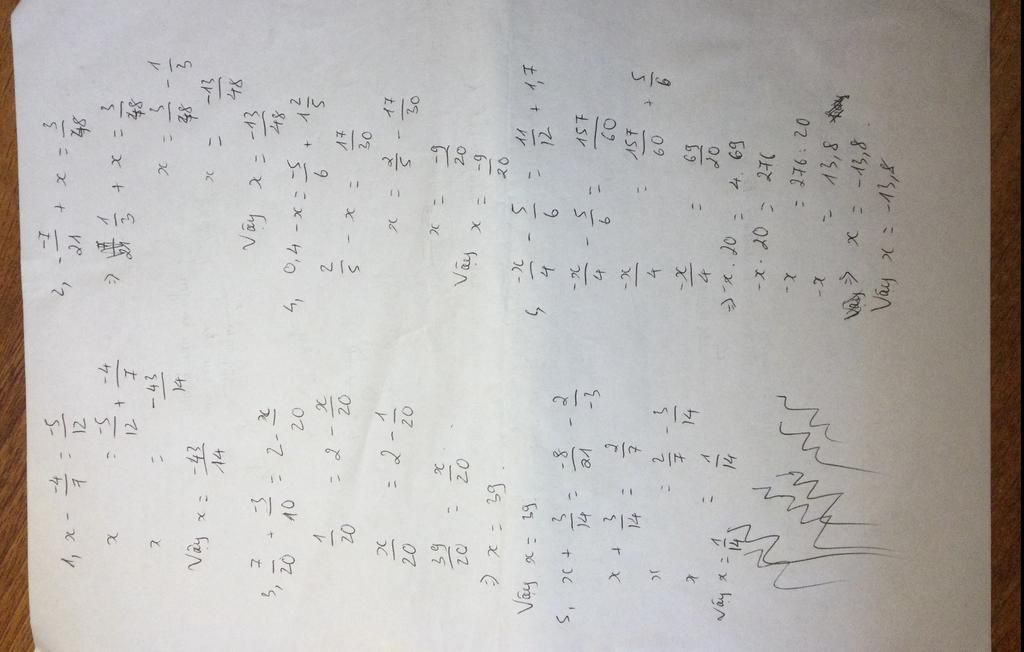 1, x - -4/7 = -5/12
x = -5/12 + -4/7
x = -43/14
Vậy x = -43/14
3, 7/20 + -3/10 = 2 - x/20
1/20 = 2 - x/20
x/20 = 2 - 1/20
39/20 = x/20
=> x = 39.
Vậy x = 39.
5, x + 3/14 = -8/21 - 2/-3
x + 3/14 = 2/7
x = 2/7 - 3/14
x = 1/14
Vậy x = 1/14
2, - -7/21 + x = 3/48
=> 1/3 + x = 3/48
x = 3/48 - 1/3
x = -13/48
Vậy x = -13/48
4, 0,4 - x = -5/6 + 1 2/5
2/5 - x = 17/30
x = 2/5 - 17/30
x = -9/20
Vậy x = -9/20
-x/4 - 5/6 = 11/12 + 1,7
-x/4 - 5/6 = 157/60
-x/4 = 157/60 + 5/6
-x/4 = 69/20
=> -x . 20 = 4 . 69
-x . 20 = 276
-x = 276 : 20
-x = 13,8
=> x = -13,8
Vậy x = -13,8